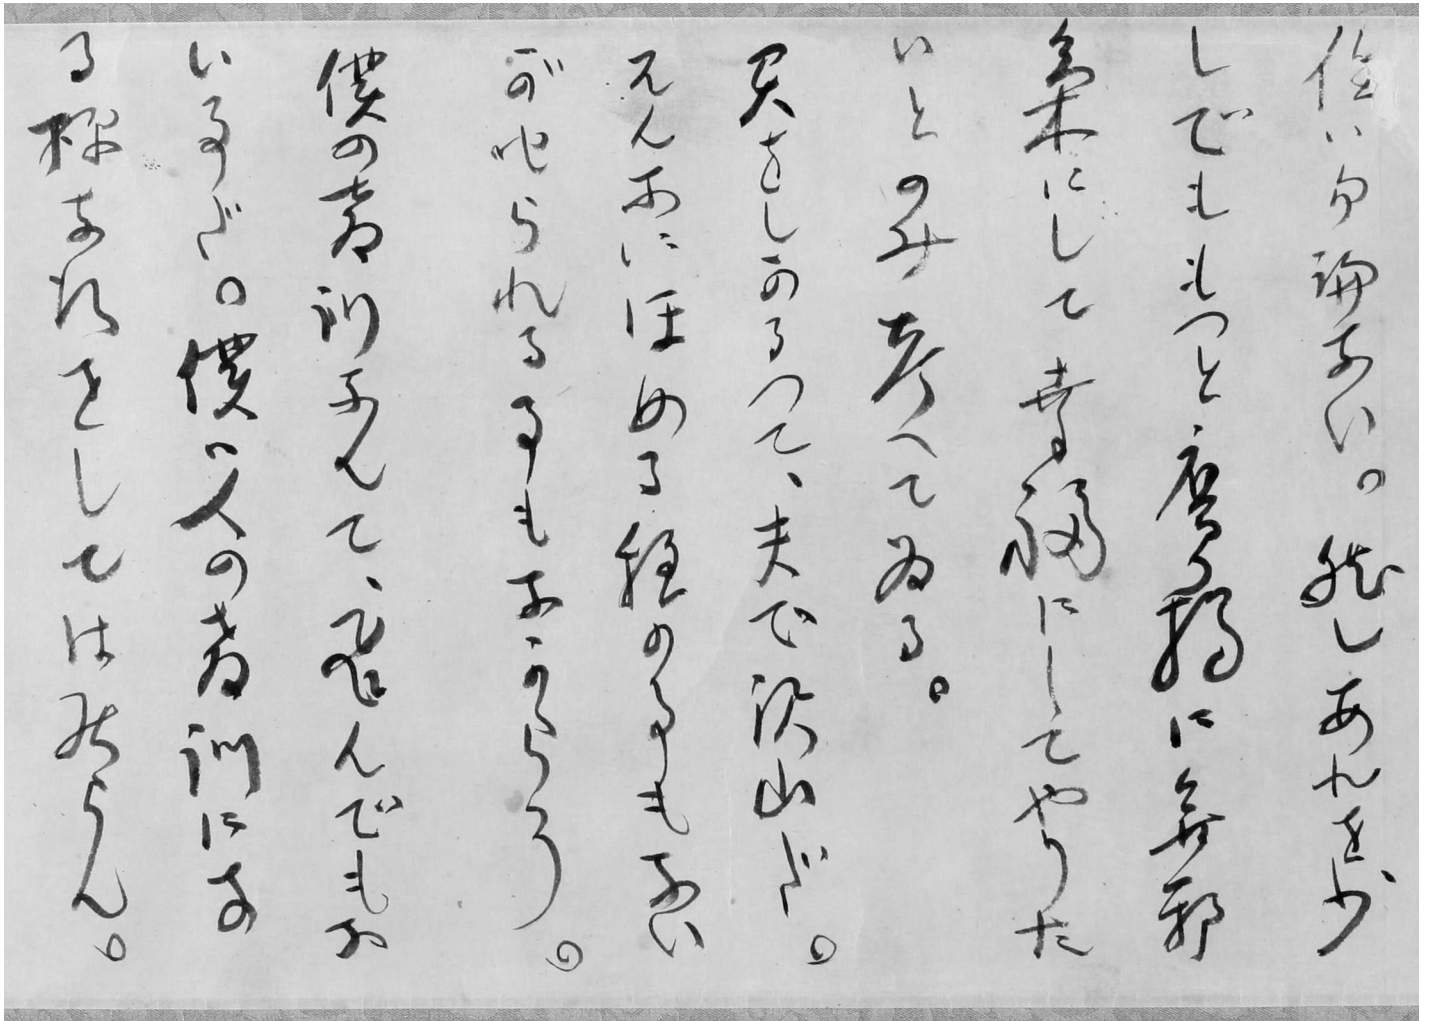 任は勿論ない。然しあれを少
しでももつと鷹揚に無邪
気にして幸福にしてやりた
いとのみ考へてゐる。
君をしかるつて、夫で沢山だ。
そんなにほめる程の事もない
が叱られる事もなからう。
僕の教訓なんて、飛んでもな
い事だ。僕は人の教訓にな
る様な行をしては居らん。